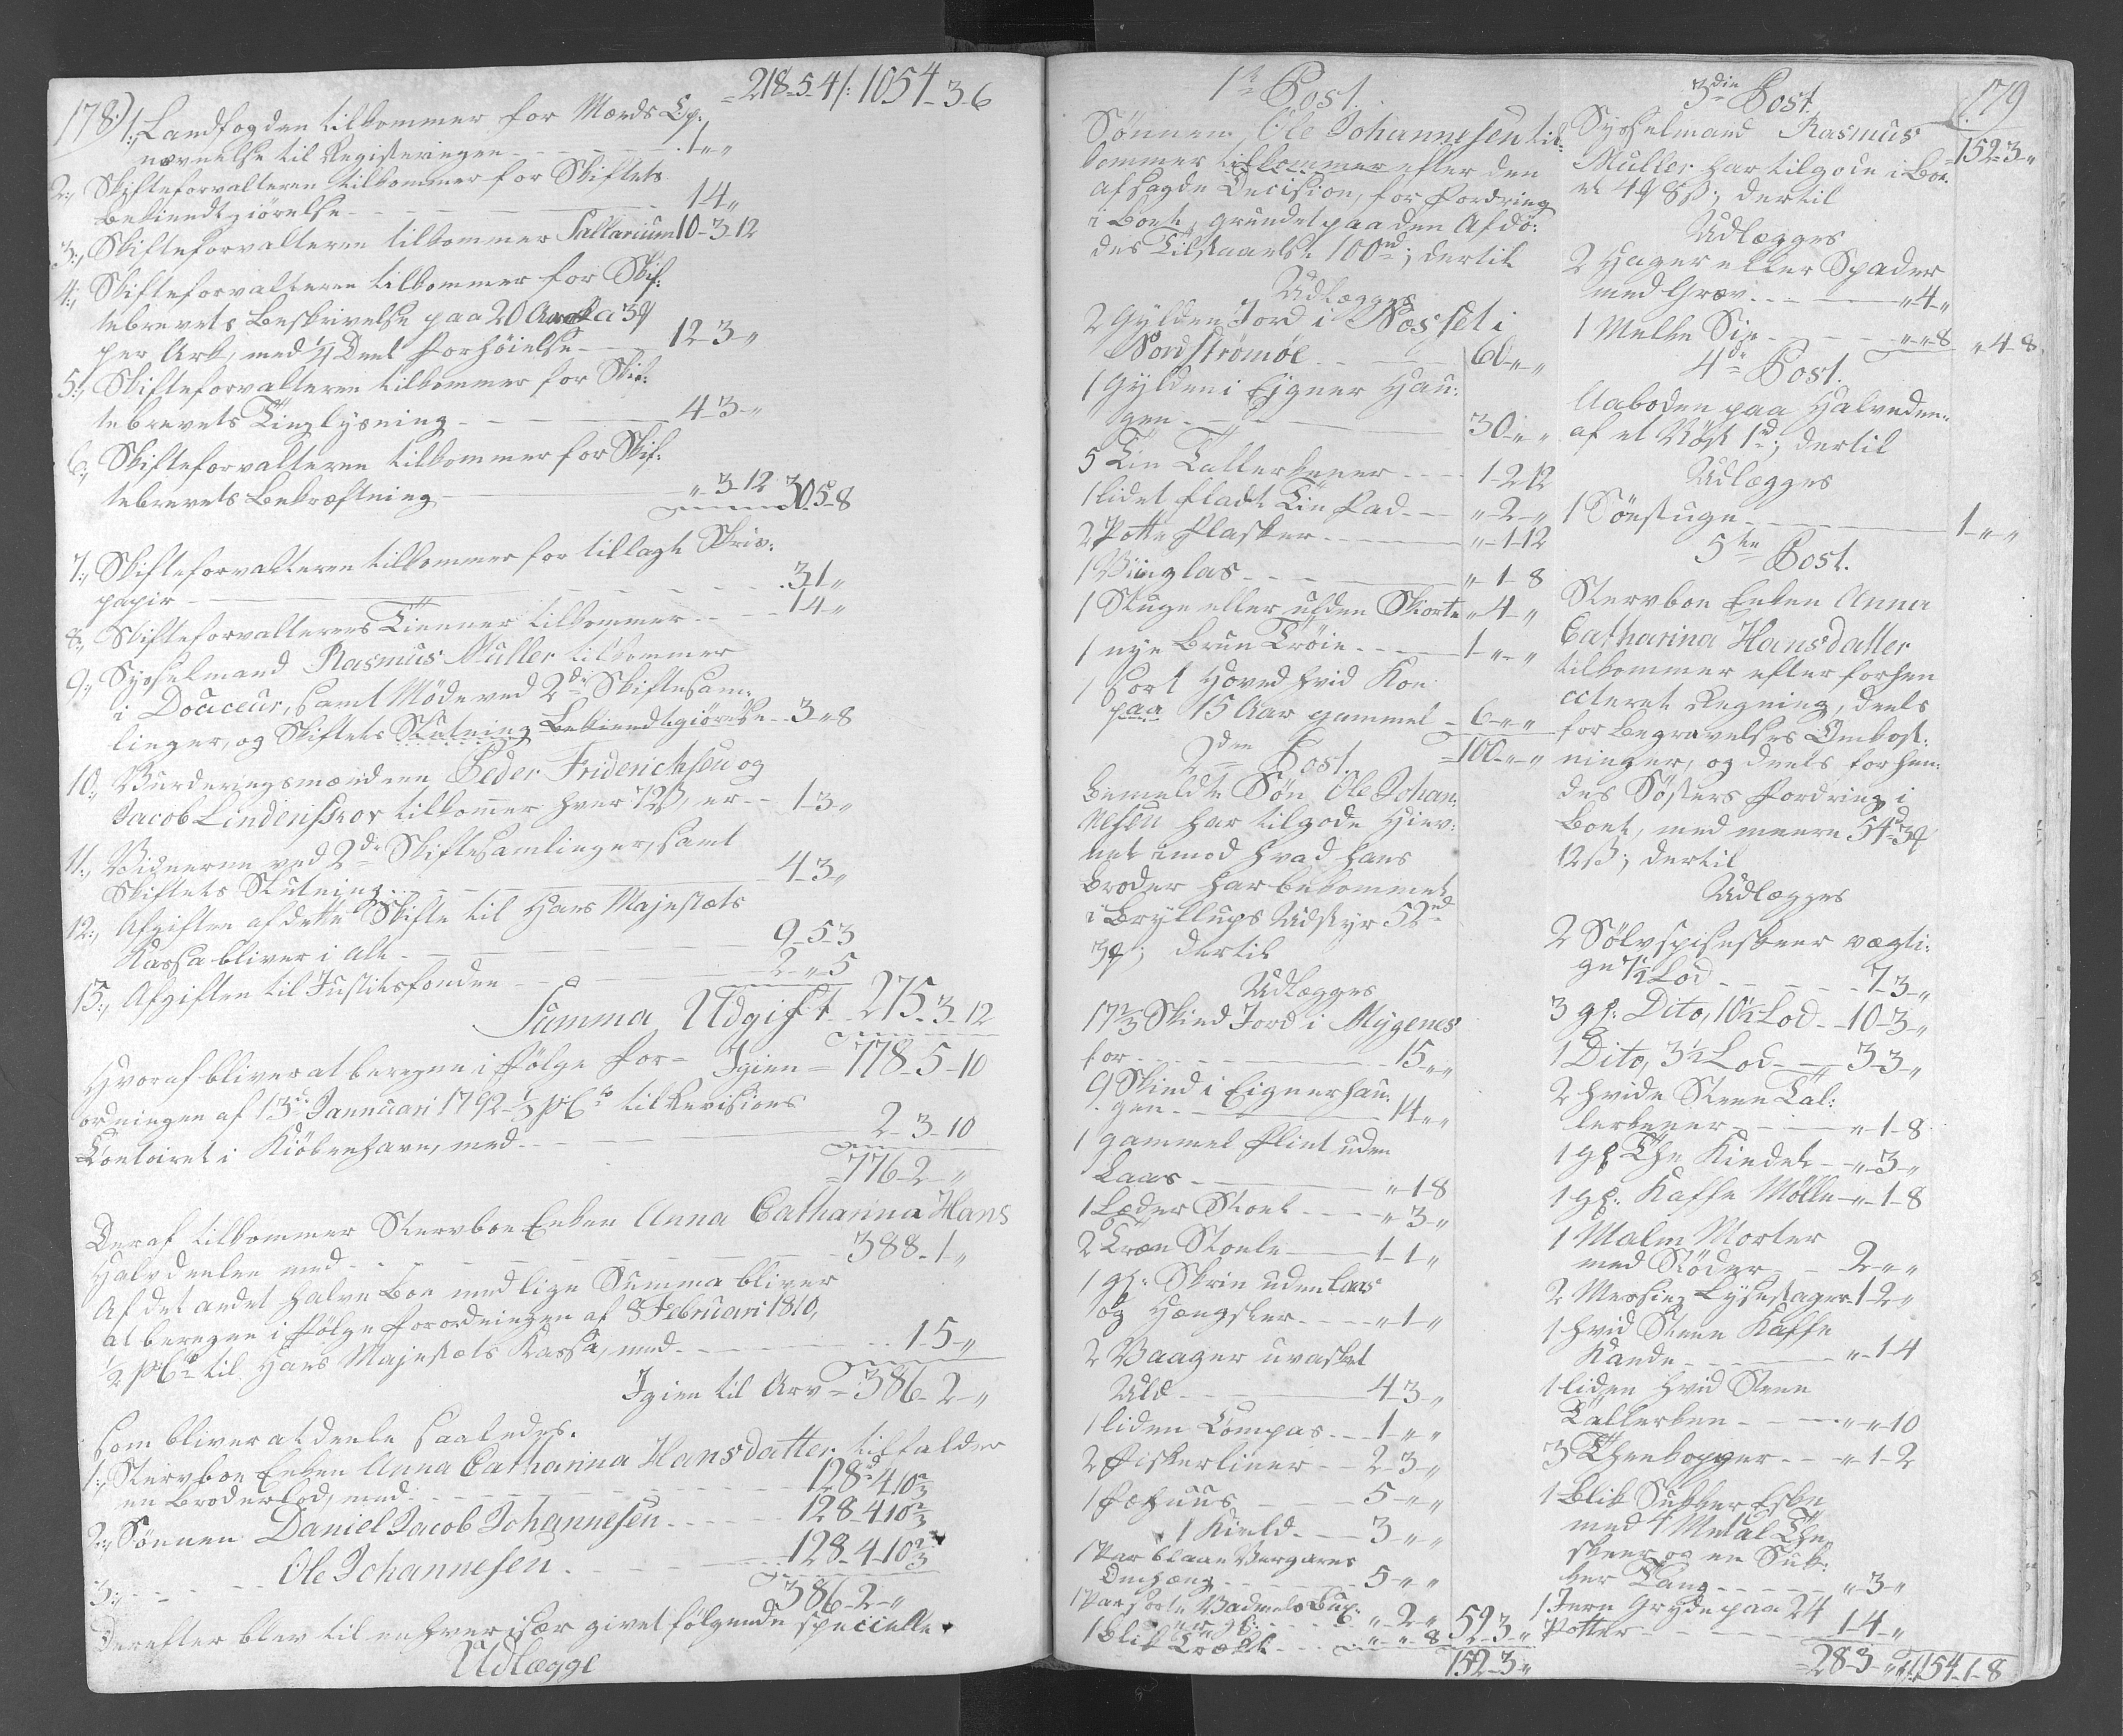 178)
218-5-4/: 1054-3-6
1:, Landfogden tilkommer for Mænds Op-
nævnelse til Registeringen - - - 1-"-"
2:, Skifteforvalteren tilkommer for Skiftets
bekiendtgiörelse - - - 1-4-"
3:, Skifteforvalteren tilkommer Sallarium 10-3-12
4:, Skifteforvalteren tilkommer for Skif:
tebrevets Beskrivelse paa 20 Ark a 3 ₰
per Ark, med 1/4 Deel Forhöielse - - 12-3-"
5:, Skifteforvalteren tilkommer for Skif:
tebrevets Tinglysning - - - 4-3-"
6:, Skifteforvalteren tilkommer for Skif:
tebrevets Bekræftning - - - "-3-12 30-5-8
7:, Skifteforvalteren tilkommer for tillagte Skriv:
papir - - - 3-1-"
8:, Skifteforvalterens Tienner tilkommer - - 1-4-"
9:, Sysselmand Rasmus Muller tilkommer
i Douceur, samt Möde ved 2de Skiftesam:
linger, og Skiftets Slutning Bekiendtgiörelse - 3-"-8
10:, Vurderingsmændene Peder Friderichsen og
Jacob Lindenskov tilkommer hver 72 ß, er - - 1-3-"
11:, Vidnerne ved 2de Skiftesamlinger, samt
Skiftets Slutning - - - 4-3-"
12:, Afgiften af dette Skifte til Hans Majestæts
Kassa bliver i alt - - - 9-5-3
13:, Afgiften til Justitsfonden - - - 2-"-5
Summa Udgift 275-3-12
Hvoraf bliver at beregne i fölge For= Igien = 778-5-10
ordningen af 13de Jannuari 1792 1/3 pCto til Revisions
Contoiret i Kiöbenhavn, med - - - 2-3-10
=776-2-"
Deraf tilkommer Stervboe Enken Anna Catharina Hans
Halvdeelen med - - - 388-1-"
Af det andet halve Boe med lige Summa bliver
at beregne i fölge Forordningen af 8 Februari 1810,
1/2 pCto til Hans Majestæts Kassa, med - - - 1-5-"
Igien til Arv = 386-2-"
som bliver at deele saaledes.
1:, Stervboe Enken Anna Catharina Hansdatter tilfalder
en Broderlod, med - - - 128-4-10 2/3
2:, Sönnen Daniel Jacob Johannesen - - - 128-4-10 2/3
3:, - - - Ole Johannesen - - - 128-4-10 2/3
386-2-"
Derefter blev til enhver især givet fölgende specielle
Udlægge
1te Post.
Sönnen Ole Johannesen til:
kommer tilkommer efter den
afsagde Decision, for Fordring
i Boet, grundet paa den Afdö:
des Tilstaaelse 100rd; dertil
Udlægges
2 Gylden Jord i Næsset i
Nordströmöe - - 60-"-"
1 Gylden i Eigner Hau:
gen - - - 30-"-"
5 Tin Tallerkener - - 1-2-12
1 lidet fladt Tin Fad - - "-2-"
2 Potte Flasker - - - "-1-12
1 Viinglas - - - "-1-8
1 Stuge eller ulden Skorte "-4-"
1 nye bruun Tröie - - - 1-"-"
1 sort Hoved hvid Koe
paa 15 Aar gammel - 6-"-"
=100-"-"
2den Post.
Bemeldte Sön Ole Johan:
nesen har tilgode Hiev:
net imod hvad hans
Broder har bekommet
i Bryllups Udstyr 52rd
3 ₰; dertil
Udlægges
17 2/3 Skind Jord i Mygenes
for - - - 15-"-"
9 Skind i Eignerhau:
gen - - - 14-"-"
1 gammel Flint uden
Laas - - - "-1-8
1 Læder Stoel - - - "-3-"
2 Træe Stoele - - - 1-1-"
1 gl: Skrin uden Laas
og Hængsler - - - "-1-"
2 Vaager uvasket
Uld - - - 4-3-"
1 liden Compas - - 1-"-"
2 Fiskerliner - - 2-3-"
1 Fæhuus - - - 5-"-"
1 Kield - - - 3-"-"
1 Par blaae Vergarns
Omhæng - - - 5-"-"
1 Par sorte Vadmels Bux:
er gl: - - - "-2-" 52-3-"
1 Blik Trægt - - - "-"-8
152-3-"
(179
3die Post.
Sysselmand Rasmus
=152-3-"
Muller har tilgode i Boe-
et 4 ₰ 8 ß; dertil
Udlægges
2 Hager eller Spader
med Græv - - - "-4-"
1 Melke Sie - - - "-"-8 "-4-8
4de Post.
Aaboden paa Halvedeelen
af et Nöst 1rd; dertil
Udlægges
1 Röestuge - - - 1-"-"
5te Post.
Stervboe Enken Anna
Catharina Hansdatter
tilkommer efter forhen
acteret Regning, deels
for Begravelses Omkost:
ninger, og deels for hen:
des Sösters Fordring i
Boet, med meere 54rd 3 ₰
12 ß; dertil
Udlægges
2 Sölv spiseskeer vægti:
ge 7 1/2 Lod - - - 7-3-"
3 gl: Dito, 10 1/2 Lod - - 10-3-"
1 Dito, 3 1/2 Lod - - 3-3-"
2 hvide Steen Tal:
lerkener - - - "-1-8
1 gl: The Kiedel - - "-3-"
1 gl: Kaffe Mölle - "-1-8
1 Malm Morter
med Stöder - - 2-"-"
2 Messing Lysestager 1-2-"
1 hvid Steen Kaffe
Kande - - - "-1-4
1 liden hvid Steen
Tallerken - - - "-"-10
3 Theekopper - - "-1-2
1 Blik Sukker Eske
med 4 Metal The
skeer og en Suk:
ker Tang - - - "-3-"
1 Jern Gryde paa 24
Potter - - - 1-4-"
=28-3-" 154-1-8